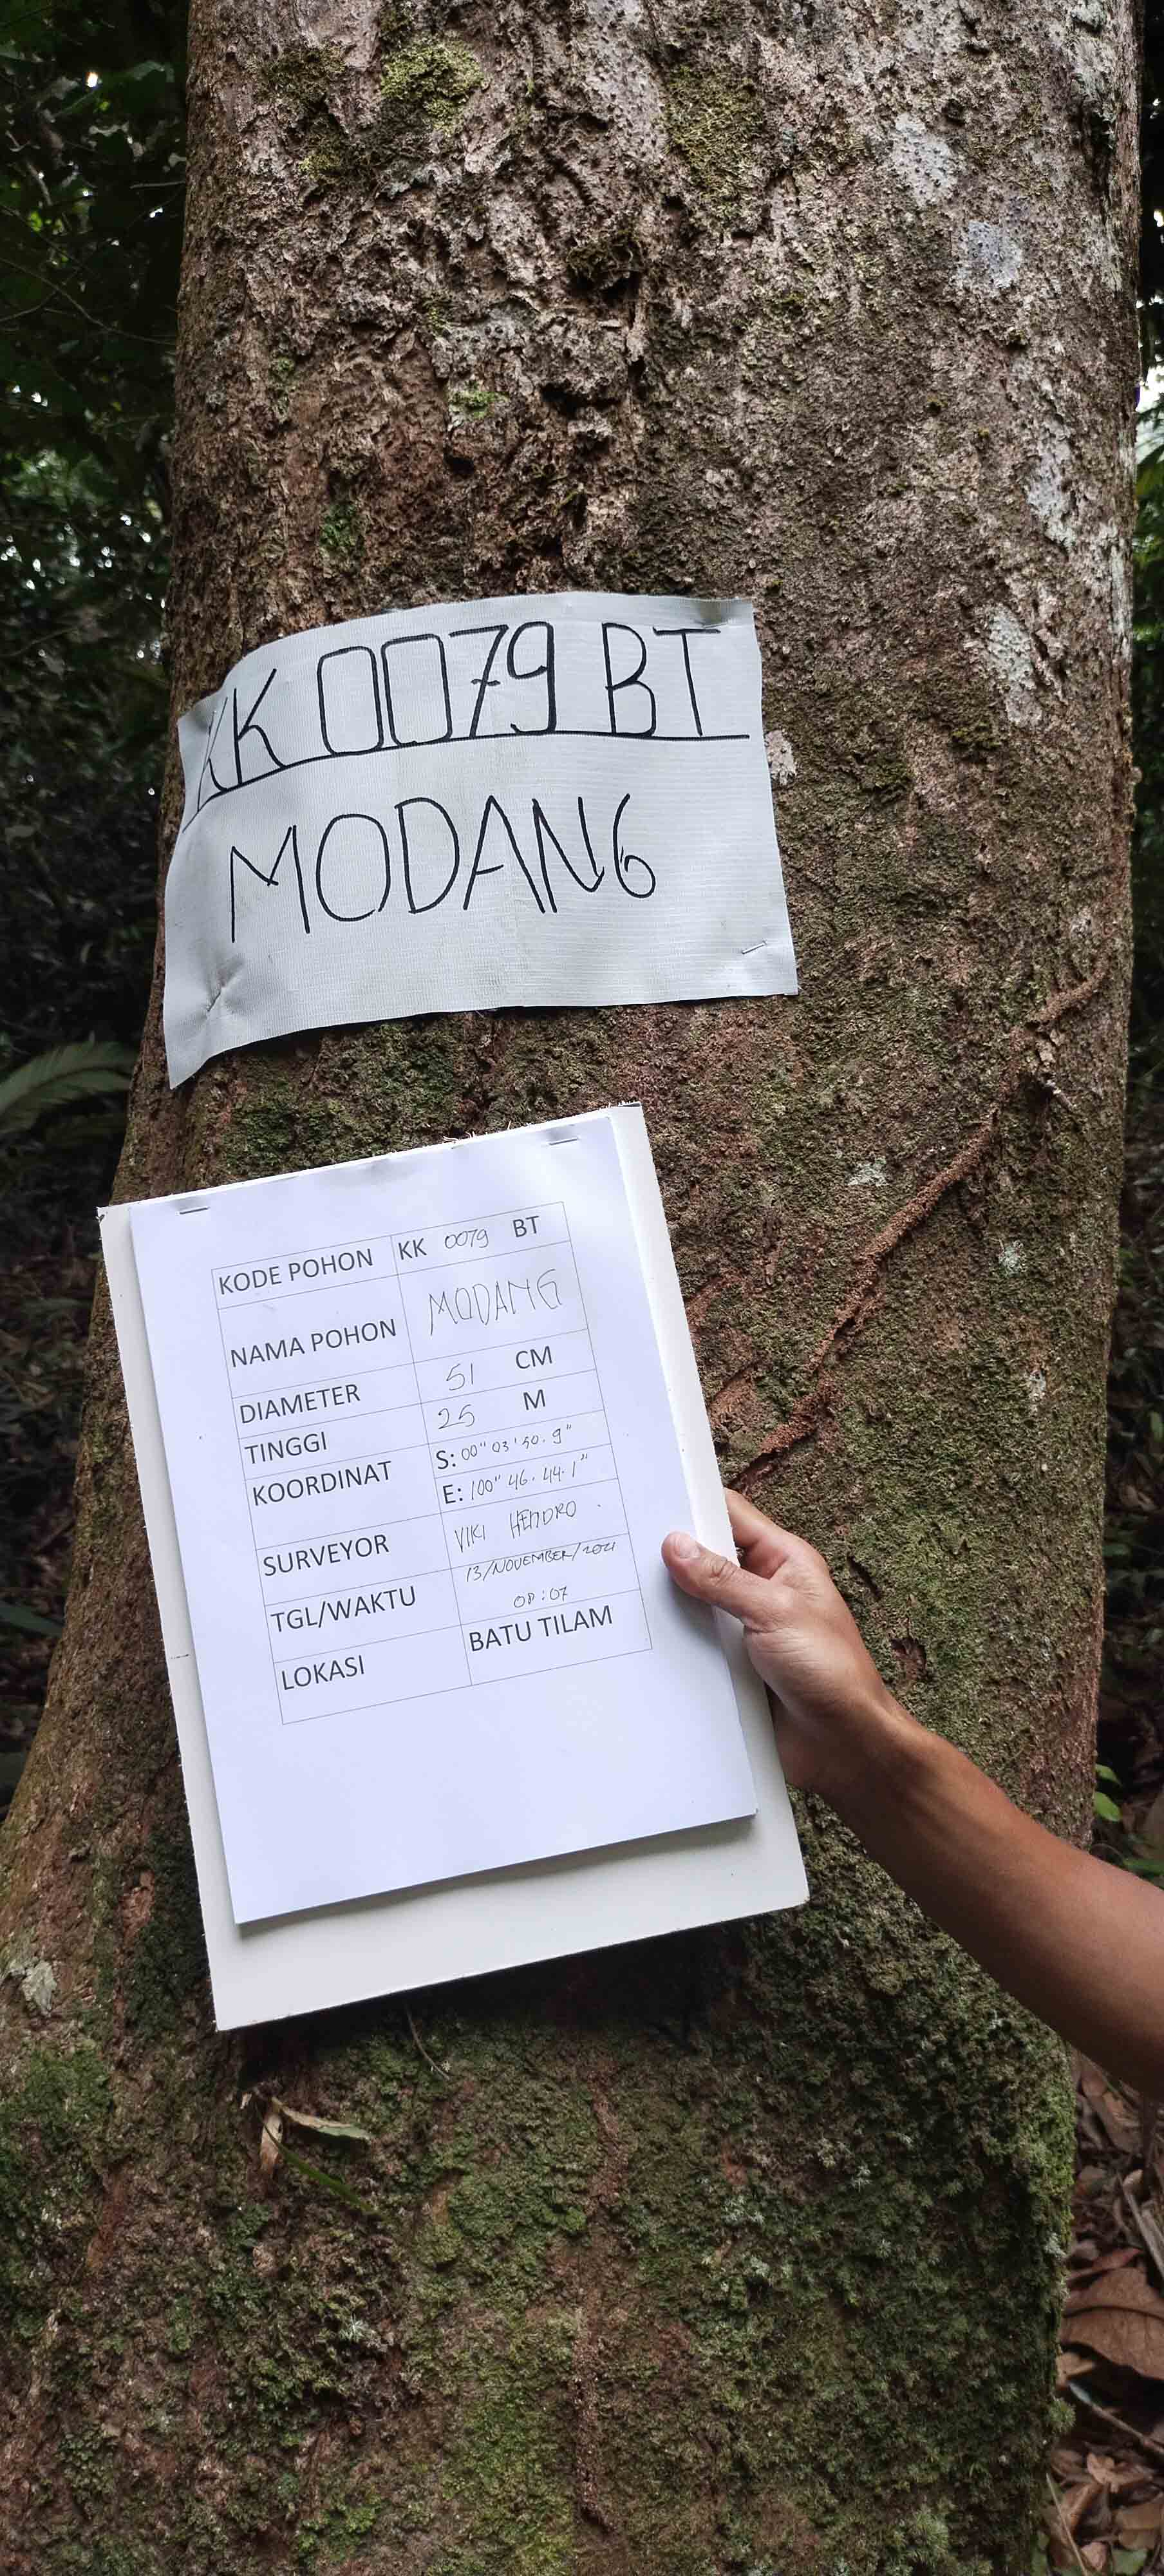 KK 0079 BT
MODANG
KODE POHON KK 0079 BT
NAMA POHON MODANG
DIAMETER 51 CM
TINGGI 25 M
KOORDINAT S: 00" 03' 50. 9"
E: 100" 46. 44. 1"
SURVEYOR VIKI HENDRO
TGL/WAKTU 13/NOVEMBER/2021
08:07
LOKASI BATU TILAM